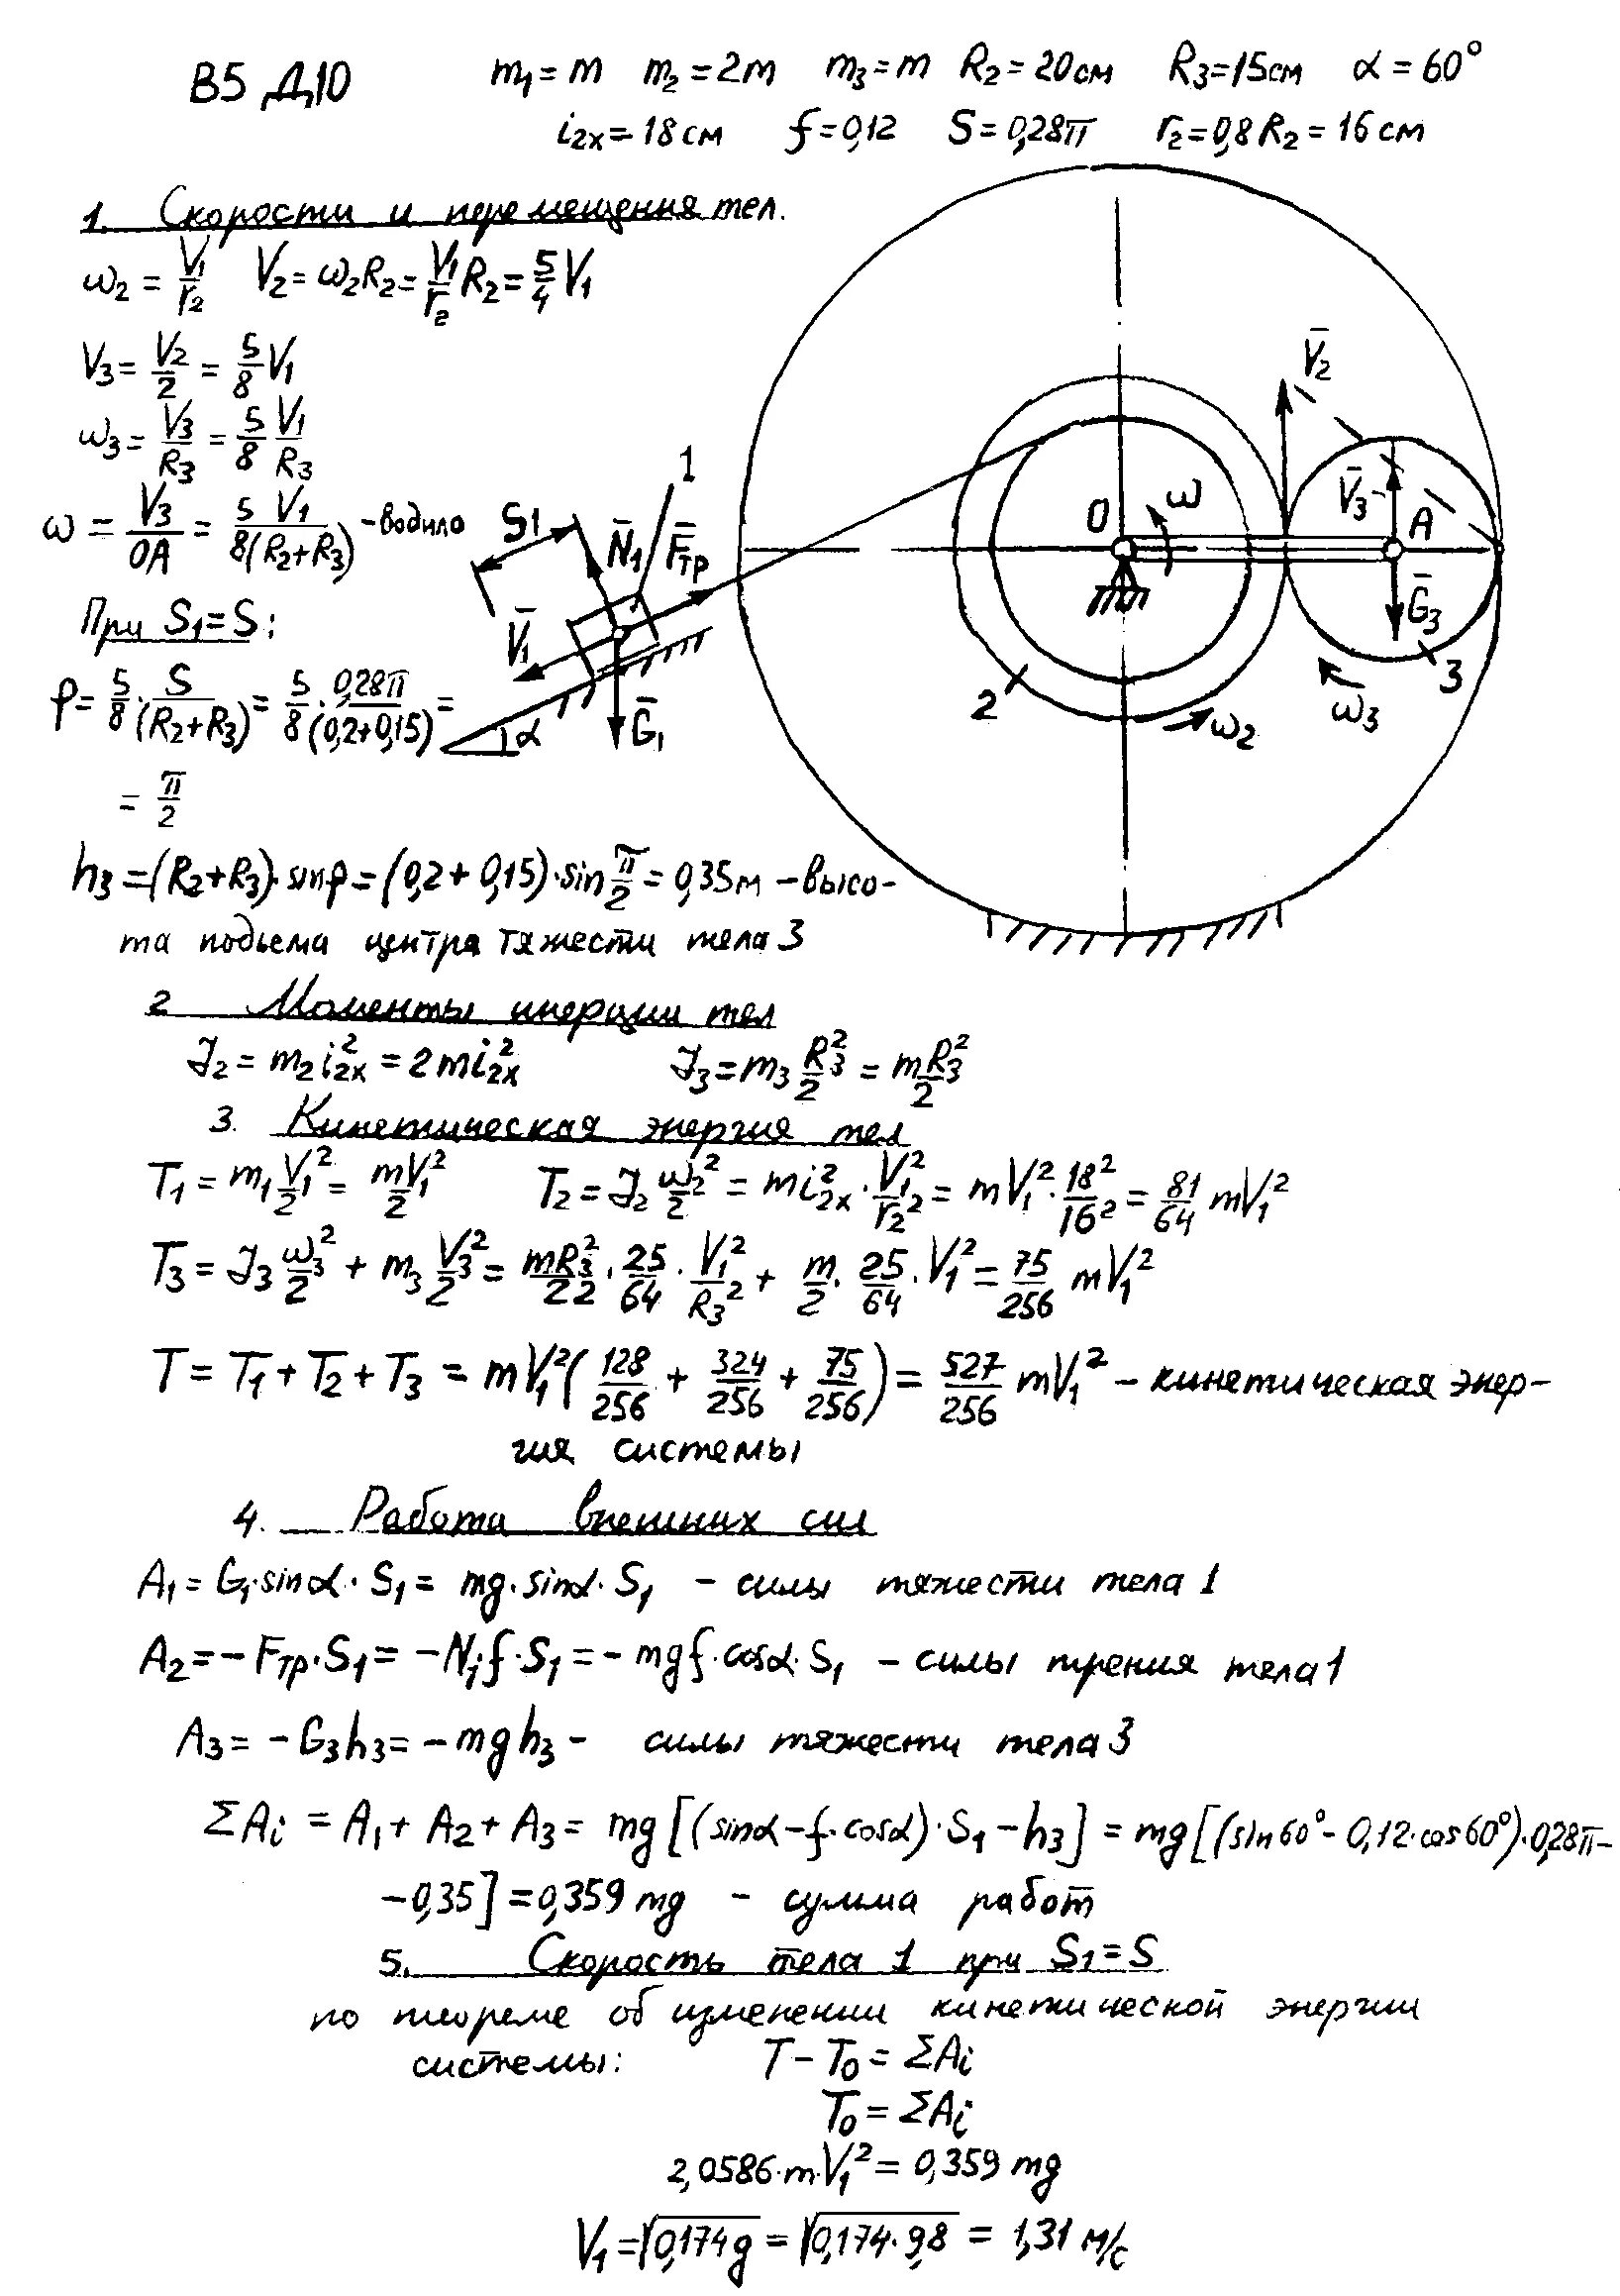 В5 Д10 m₁=m m₂=2m m₃=m R₂=20см R₃=15см α=60°
i₂ₓ=18см f=0,12 S=0,28π r₂=0,8R₂=16см
1. Скорости и перемещения тел.
ω₂ = V₁/r₂ V₂=ω₂R₂=V₁/r₂ R₂=5/4 V₁
V₃=V₂/2=5/8 V₁
ω₃=V₃/R₃=5/8 V₁/R₃
ω=V₃/OA=5V₁/8(R₂+R₃) -водило
При S₁=S:
φ=5/8·S/(R₂+R₃)=5/8·0,28π/(0,2+0,15)=
=π/2
S1
N̄₁
1
F̄тр
V̄₁
Ḡ₁
α
V̄₂
V̄₃
ω
O
A
Ḡ₃
2
3
ω₂
ω̄₃
h₃=(R₂+R₃)·sinφ=(0,2+0,15)·sin π/2=0,35м -высо-
та подьема центра тяжести тела 3
2 Моменты инерции тел
J₂=m₂i₂ₓ²=2mi₂ₓ² J₃=m₃R₃²/2=mR₃²/2
3. Кинетическая энергия тел
T₁=m₁V₁²/2=mV₁²/2 T₂=J₂ω₂²/2=mi₂ₓ²·V₁²/r₂²=mV₁²·18²/16²=81/64 mV₁²
T₃=J₃ω₃²/2+m₃V₃²/2=mR₃²/22·25/64·V₁²/R₃²+m/2·25/64·V₁²=75/256 mV₁²
T=T₁+T₂+T₃=mV₁²(128/256+324/256+75/256)=527/256 mV₁² -кинетическая энер-
гия системы
4. Работа внешних сил
A₁=G₁·sinα·S₁=mg·sinα·S₁ - силы тяжести тела 1
A₂=-Fтр·S₁=-N₁·f·S₁=-mgf·cosα·S₁ - силы трения тела 1
A₃=-G₃h₃=-mgh₃ - силы тяжести тела 3
ΣAᵢ=A₁+A₂+A₃=mg[(sinα-f·cosα)·S₁-h₃]=mg[(sin60°-0,12·cos60°)·0,28π-
-0,35]=0,359mg - сумма работ
5. Скорость тела 1 при S₁=S
по теореме об изменении кинетической энергии
системы: T-T₀=ΣAᵢ
T₀=ΣAᵢ
2,0586·m·V₁²=0,359mg
V₁=√0,174g=√0,174·9,8=1,31 м/с